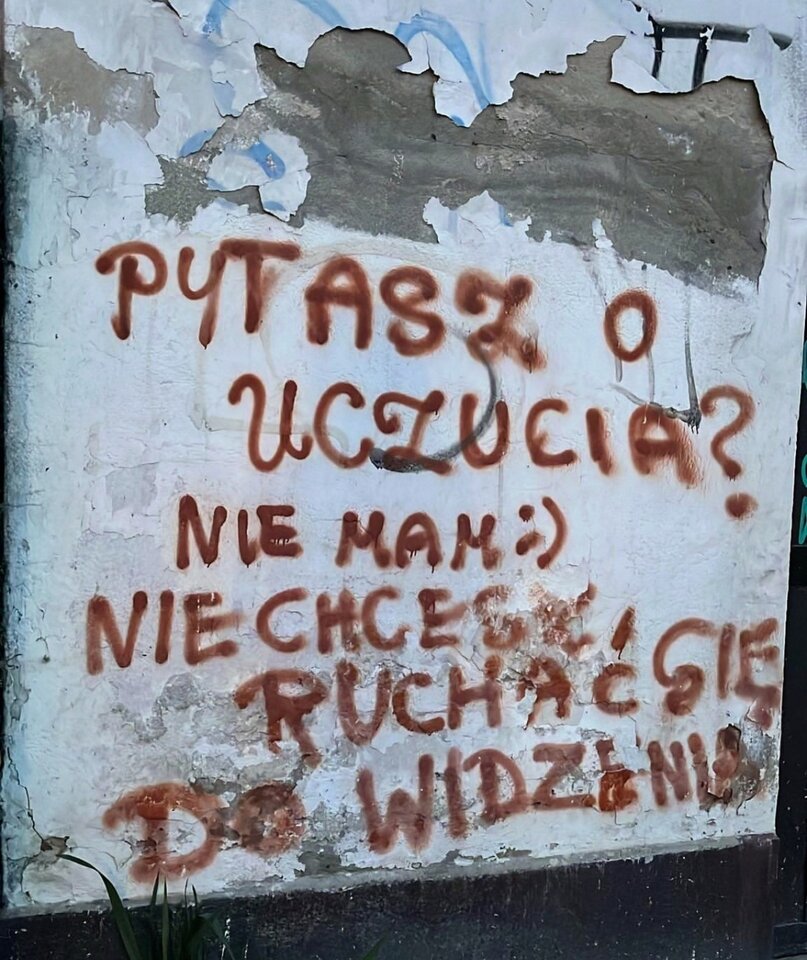 PYTASZ O
UCZUCIA?
NIE MAM :)
NIE CHCESZ
RUCHAĆ SIĘ
DO WIDZENIA